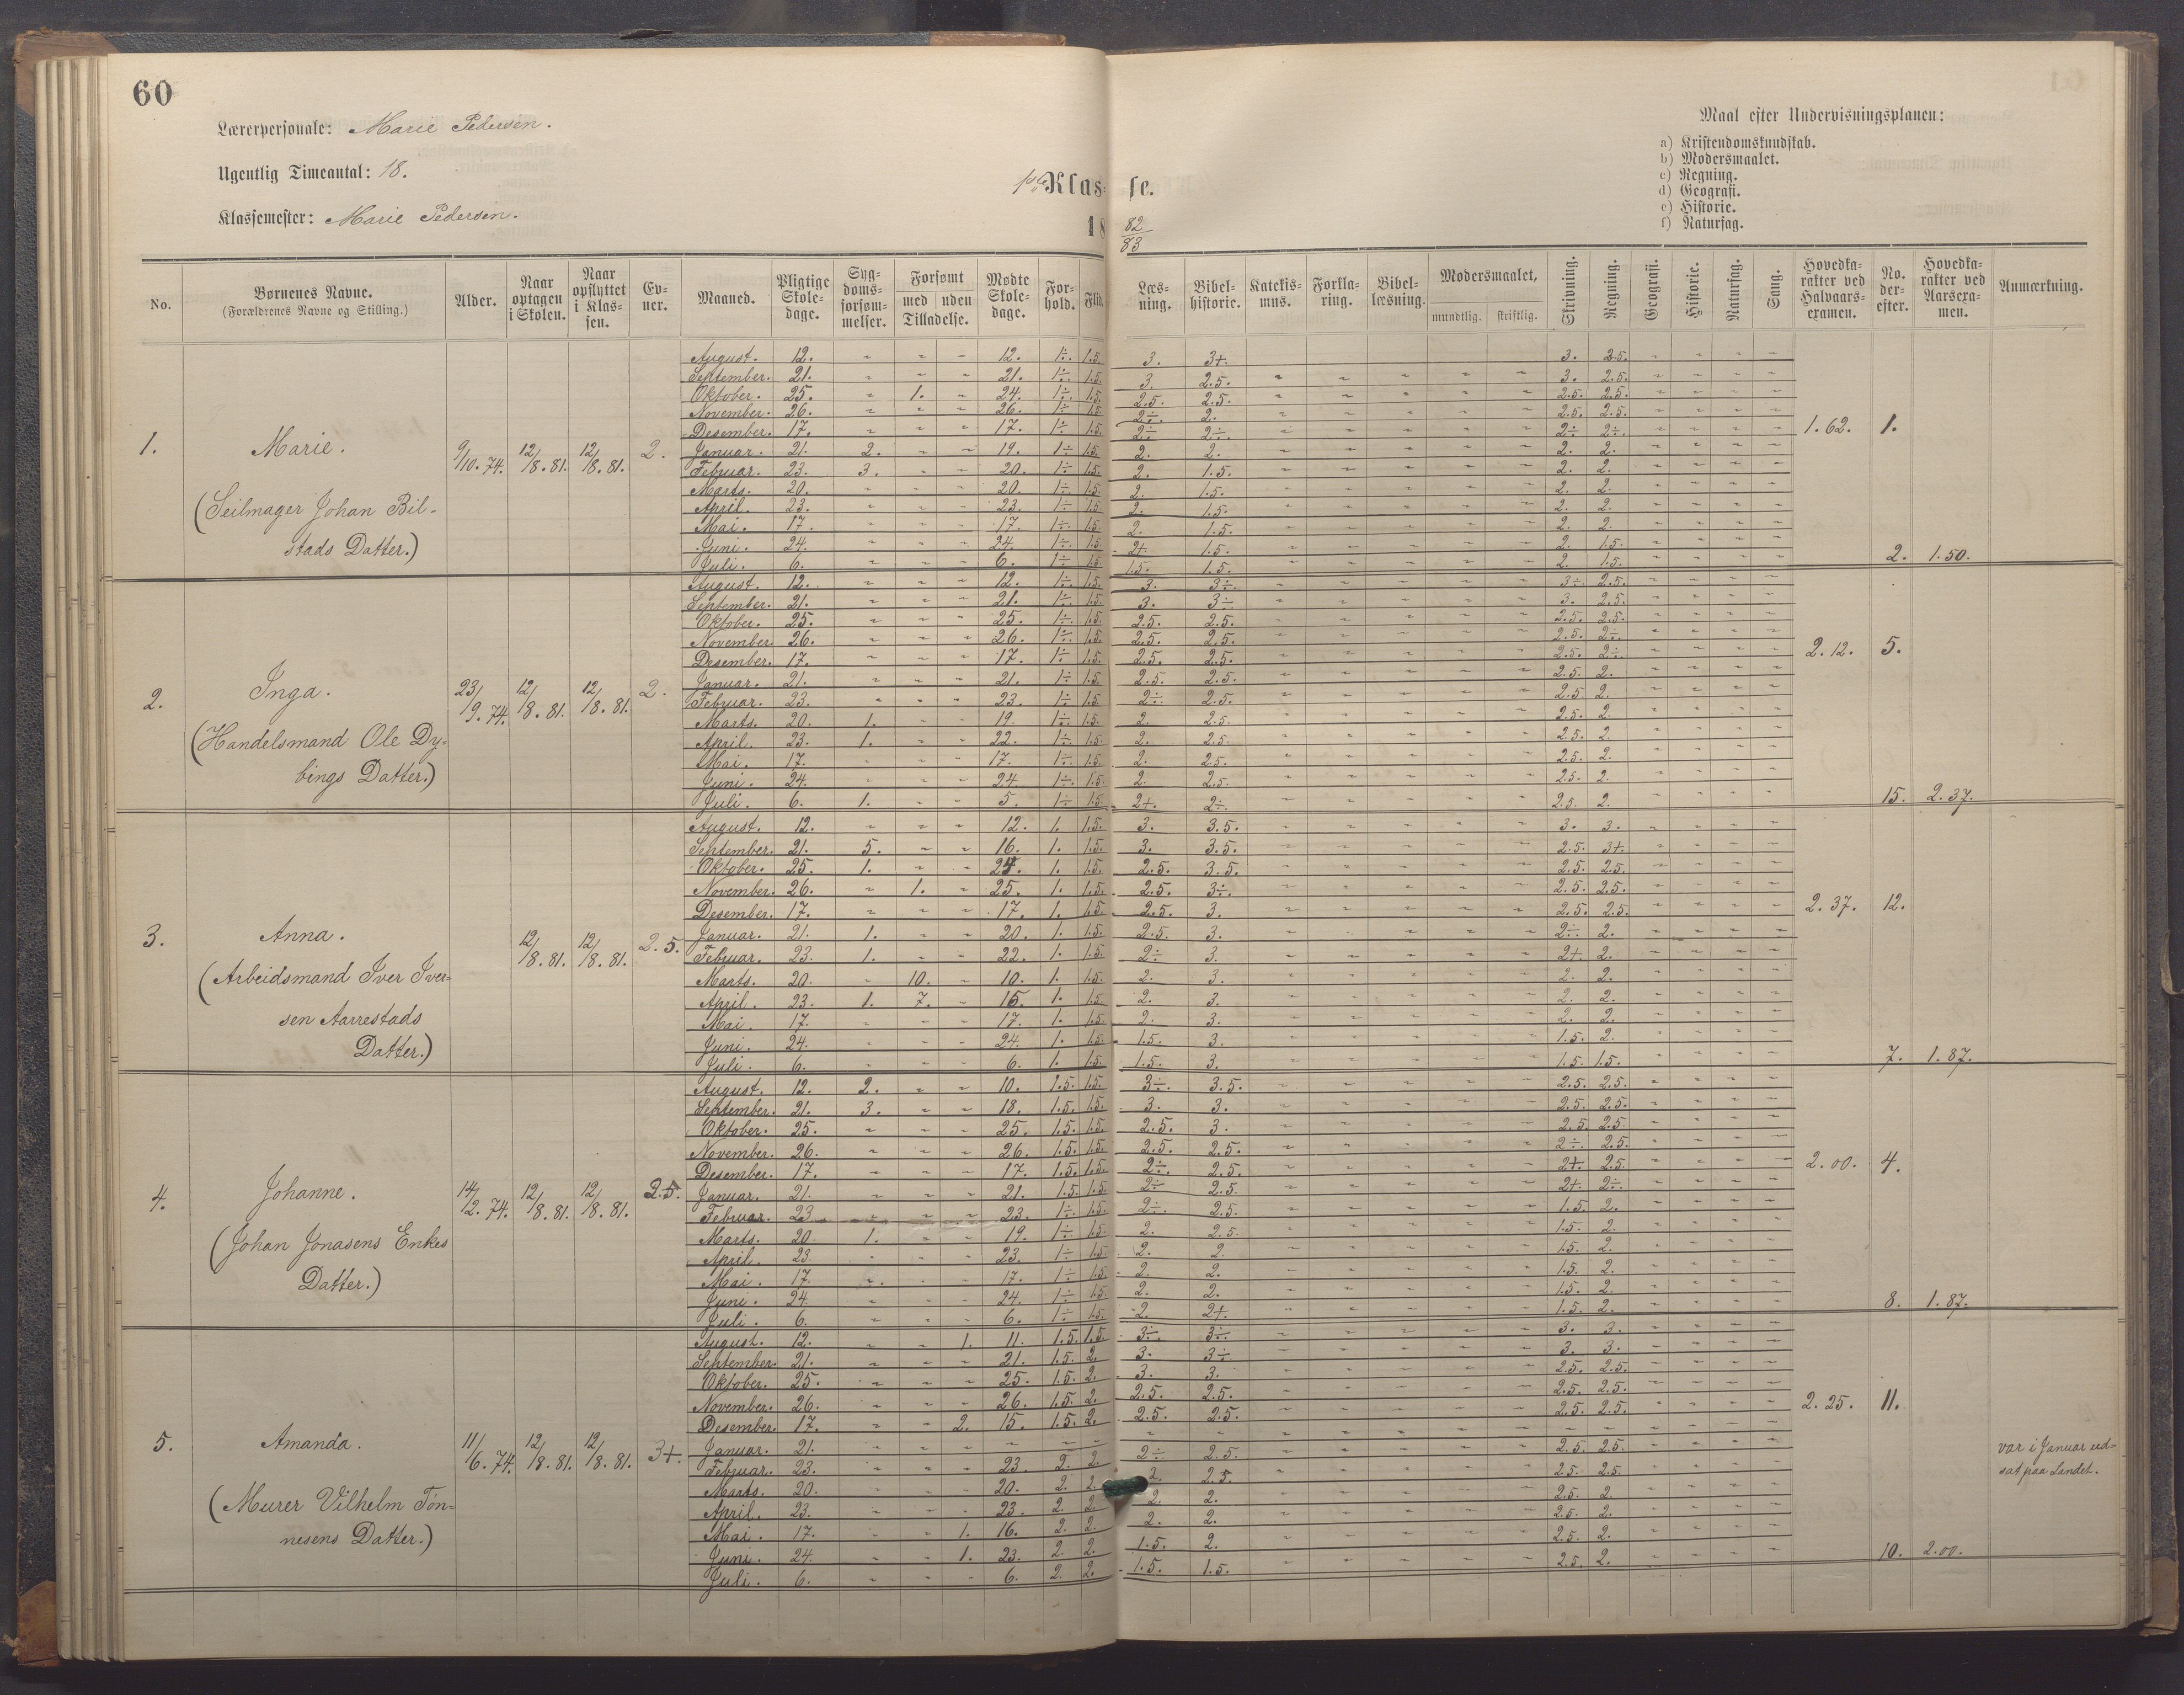 60
Lærerpersonale: Marie Pedersen.
Ugentlig Timeantal: 18.
Klassemester: Marie Pedersen.
1ste Klasse.
18 82/83
Maal efter Undervisningsplanen:
a) Kristendomskundskab.
b) Modersmaalet.
c) Regning.
d) Geografi.
e) Historie.
f) Naturfag.
No. | Børnenes Navne. (Forældrenes Navne og Stilling.) | Alder. | Naar optagen i Skolen. | Naar opflyttet i Klassen. | Evner. | Maaned. | Pligtige Skoledage. | Sygdomsforsømmelser. | Forsømt med Tilladelse. | uden Tilladelse. | Mødte Skoledage. | Forhold. | Flid. | Læsning. | Bibelhistorie. | Katekismus. | Forklaring. | Bibellæsning. | Modersmaalet, mundtlig. | skriftlig. | Skrivning. | Regning. | Geografi. | Historie. | Naturfag. | Sang. | Hovedkarakter ved Halvaarsexamen. | No. derefter. | Hovedkarakter ved Aarsexamen. | Anmærkning.
1. Marie. 9/10. 74. 12/8. 81. 12/8. 81. 2. 1.62. 1.
(Seilmager Johan Bil-
stads Datter.) 2. 1.50.
August. 12. - - - 12. 1÷. 1.5. 3. 3+. 3. 2.5. - - - -
September. 21. - - - 21. 1÷. 1.5. 3. 2.5. - - - - - 3. 2.5. - - - -
Oktober. 25. - 1. - 24. 1÷. 1.5. 2.5. 2.5. - - - - - 2.5. 2.5. - - - -
November. 26. - - - 26. 1÷ 1.5 2÷. 2. - - - - - 2.5. 2.5. - - - -
Desember. 17. - - - 17. 1÷ 1.5. 2÷ 2÷. - - - - - 2÷ 2÷. - - - -
Januar. 21. 2. - - 19. 1÷ 1.5. 2. 2. - - - - - 2. 2. - - - -
Februar. 23. 3. - - 20. 1÷. 1.5 2. 1.5. - - - - - 2. 2. - - - -
Marts. 20. - - - 20. 1÷ 1.5. 2. 1.5. - - - - - 2. 2. - - - -
April. 23. - - - 23. 1÷ 1.5. 2. 1.5. - - - - - 2. 2. - - - -
Mai. 17. - - - 17. 1÷. 1.5. 2. 1.5. - - - - - 2. 2. - - - -
Juni. 24. - - - 24. 1÷. 1.5 2+. 1.5. - - - - - 2. 1.5. - - - -
Juli. 6. - - - 6. 1÷ 1.5 1.5. 1.5. - - - - - 2. 1.5. - - - -
2. Inga. 23/9. 74. 12/8. 81. 12/8. 81. 2. 2.12. 5.
(Handelsmand Ole Dy-
bings Datter.) 15. 2.37.
August. 12. - - - 12. 1÷. 1.5. 3. 3÷. - - - - - 3÷ 2.5. - - - -
September. 21. - - - 21. 1÷. 1.5. 3. 3÷ - - - - - 3. 2.5. - - - -
Oktober. 25. - - - 25. 1÷. 1.5. 2.5. 2.5. - - - - - 2.5. 2.5. - - - -
November. 26. - - - 26. 1÷. 1.5 2.5. 2.5. - - - - - 2.5. 2÷. - - - -
Desember. 17. - - - 17. 1÷ 1.5. 2.5. 2.5. - - - - - 2.5. 2÷. - - - -
Januar. 21. - - - 21. 1÷ 1.5. 2.5. 2.5. - - - - - 2.5. 2. - - - -
Februar. 23. - - - 23. 1÷ 1.5. 2÷ 2.5. - - - - - 2.5. 2. - - - -
Marts. 20. 1. - - 19. 1÷. 1.5. 2. 2.5. - - - - - 2.5. 2. - - - -
April. 23. 1. - - 22. 1÷ 1.5. 2. 2.5. - - - - - 2.5. 2. - - - -
Mai. 17. - - - 17. 1÷. 1.5. 2. 2.5. - - - - - 2.5. 2. - - - -
Juni. 24. - - - 24. 1÷. 1.5. 2. 2.5. - - - - - 2.5. 2. - - - -
Juli. 6. 1. - - 5. 1÷ 1.5. 2+. 2÷. - - - - - 2.5. 2. - - - -
3. Anna. 12/8. 81. 12/8. 81. 2.5. 2.37. 12.
(Arbeidsmand Iver Iver-
sen Aarrestads
Datter.) 7. 1.87.
August. 12. - - - 12. 1. 1.5. 3. 3.5. - - - - - 3. 3. - - - -
September. 21. 5. - - 16. 1. 1.5. 3. 3.5. - - - - - 2.5. 3+. - - - -
Oktober. 25. 1. - - 24. 1. 1.5. 2.5. 3.5. - - - - - 2.5. 2.5. - - - -
November. 26. - 1. - 25. 1. 1.5. 2.5. 3÷. - - - - - 2.5. 2.5. - - - -
Desember. 17. - - - 17. 1. 1.5. 2.5. 3. - - - - - 2.5. 2.5. - - - -
Januar. 21. 1. - - 20. 1. 1.5. 2.5. 3. - - - - - 2÷. 2. - - - -
Februar. 23. 1. - - 22. 1. 1.5. 2÷ 3. - - - - - 2+. 2. - - - -
Marts. 20. - 10. - 10. 1. 1.5. 2. 3. - - - - - 2. 2. - - - -
April. 23. 1. 7. - 15. 1. 1.5 2. 3. - - - - - 2. 2. - - - -
Mai. 17. - - - 17. 1. 1.5. 2. 3. - - - - - 2. 2. - - - -
Juni. 24. - - - 24. 1. 1.5. 1.5. 3. - - - - - 1.5. 2. - - - -
Juli. 6. - - - 6. 1. 1.5 1.5. 3. - - - - - 1.5. 1.5. - - - -
4. Johanne. 14/2. 74. 12/8. 81. 12/8. 81. 2.5. 2.00. 4.
(Johan Jonasens Enkes
Datter.) 8. 1.87.
August. 12. 2. - - 10. 1.5. 1.5. 3÷. 3.5. - - - - - 2.5. 2.5. - - - -
September. 21. 3. - - 18. 1.5. 1.5. 3. 3. - - - - - 2.5. 2.5. - - - -
Oktober. 25. - - - 25. 1.5. 1.5. 2.5. 3. - - - - - 2.5. 2.5. - - - -
November. 26. - - - 26. 1.5. 1.5. 2.5. 2.5. - - - - - 2÷. 2.5. - - - -
Desember. 17. - - - 17. 1.5. 1.5. 2÷. 2.5. - - - - - 2+. 2.5. - - - -
Januar. 21. - - - 21. 1.5. 1.5. 2÷ 2.5. - - - - - 2+. 2÷. - - - -
Februar. 23 - - - 23. 1÷. 1.5. 2÷. 2.5. - - - - - 1.5. 2. - - - -
Marts. 20. 1. - - 19. 1÷ 1.5. 2. 2.5. - - - - - 1.5. 2. - - - -
April. 23. - - - 23. 1÷ 1.5. 2. 2. - - - - - 1.5. 2. - - - -
Mai. 17. - - - 17. 1÷ 1.5. 2. 2. - - - - - 1.5. 2. - - - -
Juni. 24. - - - 24. 1÷ 1.5. 2. 2. - - - - - 1.5. 2. - - - -
Juli. 6. - - - 6. 1÷ 1.5. 2. 2+. - - - - - 1.5. 2. - - - -
5. Amanda. 11/6. 74. 12/8. 81. 12/8. 81. 3+. 2.25. 11.
(Murer Vilhelm Tøn-
nesens Datter.) 10. 2.00.
August. 12. - - 1. 11. 1.5. 1.5. 3÷. 3÷. - - - - - 3. 3. - - - -
September. 21. - - - 21. 1.5. 2. 3. 3÷ - - - - - 3. 3. - - - -
Oktober. 25. - - - 25. 1.5. 2. 3. 3. - - - - - 2.5. 2.5. - - - -
November. 26. - - - 26. 1.5. 2. 2.5. 2.5. - - - - - 2.5. 2.5. - - - -
Desember. 17. - - 2. 15. 1.5. 2. 2.5. 2.5. - - - - - 2.5. 2.5. - - - -
Januar. 21. - - - - - - - - - - - - - - - - - - -
Februar. 23. - - - 23. 2. 2. 2÷ 2.5. - - - - - 2.5. 2.5. - - - -
Marts. 20. - - - 20. 2. 2. 2. 2.5. - - - - - 2.5. 2.5. - - - -
April. 23. - - - 23. 2. 2. 2. 2. - - - - - 2.5. 2. - - - -
Mai. 17. - - 1. 16. 2. 2. 2. 2. - - - - - 2.5. 2. - - - -
Juni. 24. - - 1. 23. 2. 2. 1.5. 2. - - - - - 2.5. 2. - - - -
Juli. 6. - - - 6. 2. 2. 1.5. 1.5. - - - - - 2.5. 2. - - - -
var i Januar ud-
sat paa Landet.